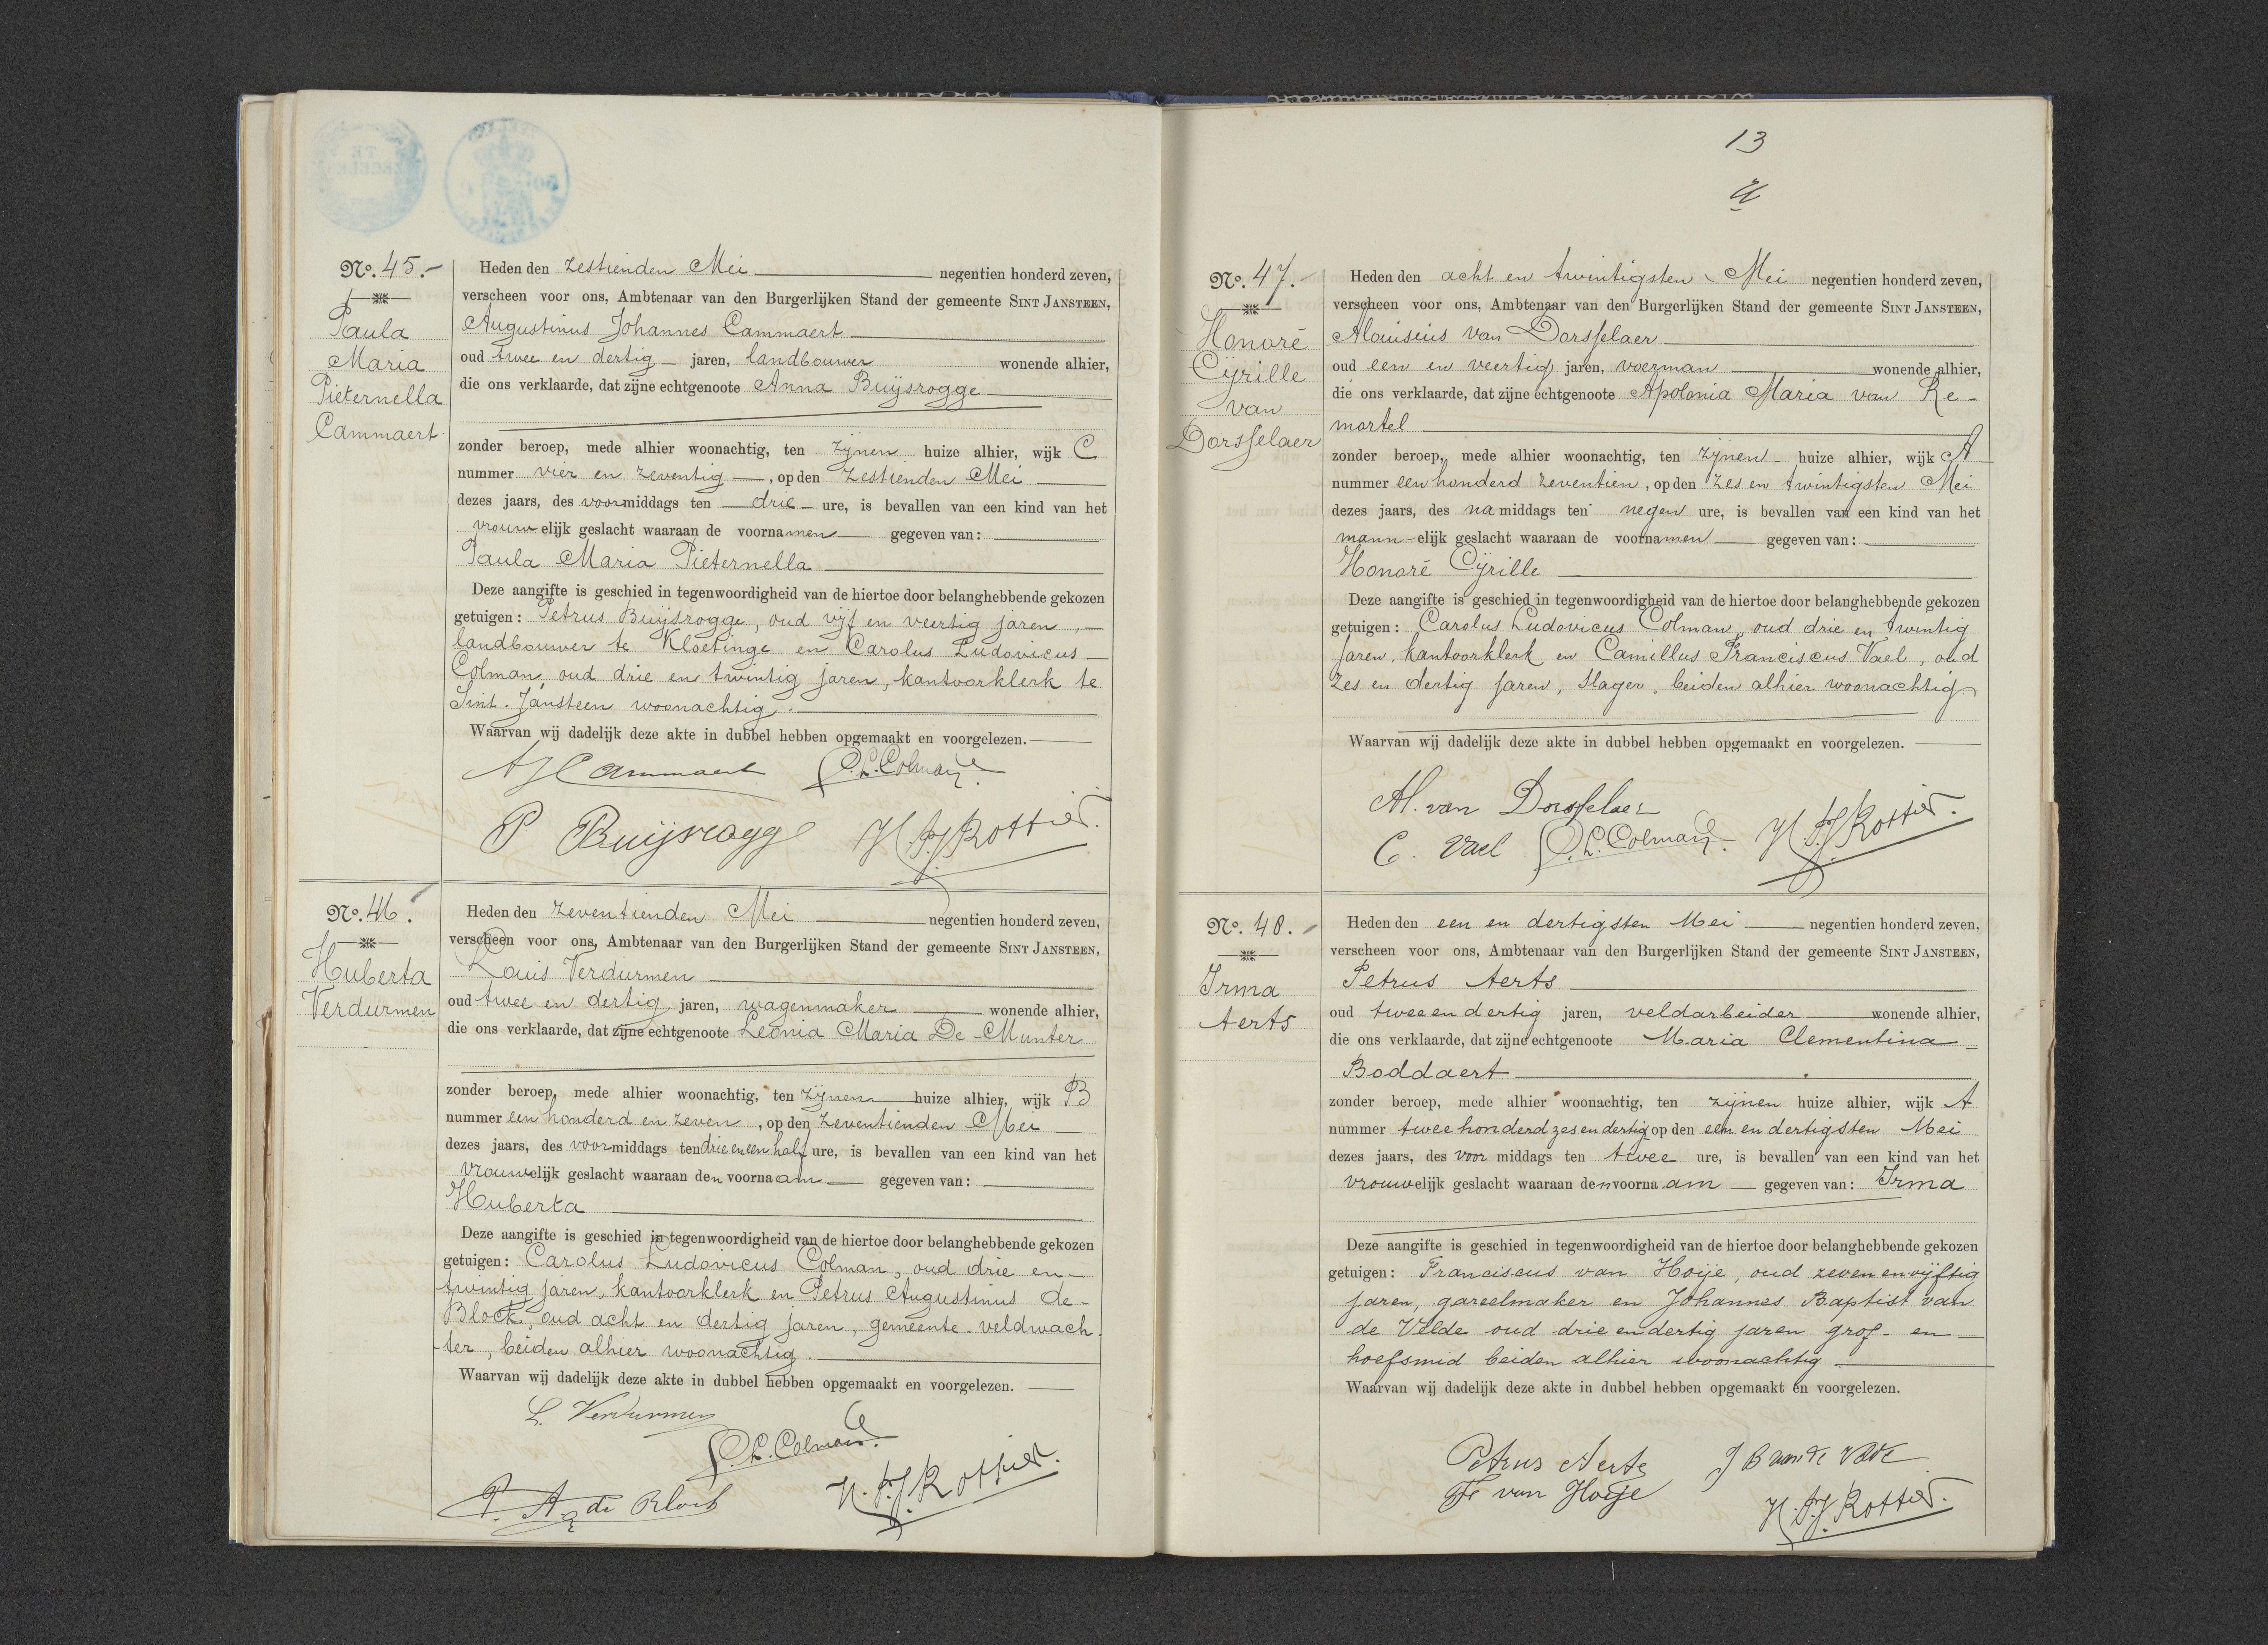 No. 45.-
Paula
Maria
Pieternella
Cammaert
Heden den zestienden Mei negentien honderd zeven,
verscheen voor ons, Ambtenaar van den Burgerlijken Stand der gemeente SINT JANSTEEN,
Augustinus Johannes Cammaert
oud twee en dertig jaren, landbouwer wonende alhier,
die ons verklaarde, dat zijne echtgenoote Anna Buijsrogge
zonder beroep, mede alhier woonachtig, ten zijnen huize alhier, wijk C
nummer vier en zeventig, op den zestienden Mei
dezes jaars, des voormiddags ten drie ure, is bevallen van een kind van het
vrouwelijk geslacht waaraan de voornamen gegeven van:
Paula Maria Pieternella
Deze aangifte is geschied in tegenwoordigheid van de hiertoe door belanghebbende gekozen
getuigen: Petrus Buijsrogge, oud vijf en veertig jaren,
landbouwer te Kloetinge en Carolus Ludovicus
Colman, oud drie en twintig jaren, kantoorklerk te
Sint. Jansteen woonachtig.
Waarvan wij dadelijk deze akte in dubbel hebben opgemaakt en voorgelezen.
AJCammaert C.L.Colman
P Buijsrogge H.F.J.Rottier.
No. 46.
Huberta
Verdurmen
Heden den zeventienden Mei negentien honderd zeven,
verscheen voor ons, Ambtenaar van den Burgerlijken Stand der gemeente SINT JANSTEEN,
Louis Verdurmen
oud twee en dertig jaren, wagenmaker wonende alhier,
die ons verklaarde, dat zijne echtgenoote Leonia Maria De Munter
zonder beroep, mede alhier woonachtig, ten zijnen huize alhier, wijk B
nummer een honderd en zeven, op den zeventienden Mei
dezes jaars, des voormiddags ten drie en een half ure, is bevallen van een kind van het
vrouwelijk geslacht waaraan den voornaam gegeven van:
Huberta
Deze aangifte is geschied in tegenwoordigheid van de hiertoe door belanghebbende gekozen
getuigen: Carolus Ludovicus Colman, oud drie en-
twintig jaren, kantoorklerk en Petrus Augustinus de-
Block, oud acht en dertig jaren, gemeente-veldwach-
ter, beiden alhier woonachtig.
Waarvan wij dadelijk deze akte in dubbel hebben opgemaakt en voorgelezen.
L. Verdurmen
C.L.Colman.
P. A. de Block H.F.J.Rottier.
13
No. 47.-
Honoré
Cijrille
van
Dorsselaer
Heden den acht en twintigsten Mei negentien honderd zeven,
verscheen voor ons, Ambtenaar van den Burgerlijken Stand der gemeente SINT JANSTEEN,
Aloisius van Dorsselaer
oud een en veertig jaren, voerman wonende alhier,
die ons verklaarde, dat zijne echtgenoote Apolonia Maria van Re-
mortel
zonder beroep, mede alhier woonachtig, ten zijnen huize alhier, wijk A
nummer een honderd zeventien, op den zes en twintigsten Mei
dezes jaars, des namiddags ten negen ure, is bevallen van een kind van het
mannelijk geslacht waaraan de voornamen gegeven van:
Honoré Cijrille
Deze aangifte is geschied in tegenwoordigheid van de hiertoe door belanghebbende gekozen
getuigen: Carolus Ludovicus Colman, oud drie en twintig
jaren, kantoorklerk en Camillus Franciscus Vael, oud
zes en dertig jaren, slager, beiden alhier woonachtig
Waarvan wij dadelijk deze akte in dubbel hebben opgemaakt en voorgelezen.
Al. van Dorsselaer
C. Vael C.L.Colman. H.F.J.Rottier.
No. 48.
Irma
Aerts
Heden den een en dertigsten Mei negentien honderd zeven,
verscheen voor ons, Ambtenaar van den Burgerlijken Stand der gemeente SINT JANSTEEN,
Petrus Aerts
oud twee en dertig jaren, veldarbeider wonende alhier,
die ons verklaarde, dat zijne echtgenoote Maria Clementina
Boddaert
zonder beroep, mede alhier woonachtig, ten zijnen huize alhier, wijk A
nummer twee honderd zes en dertig op den een en dertigsten Mei
dezes jaars, des voormiddags ten twee ure, is bevallen van een kind van het
vrouwelijk geslacht waaraan den voornaam gegeven van: Irma
Deze aangifte is geschied in tegenwoordigheid van de hiertoe door belanghebbende gekozen
getuigen: Franciscus van Hoije, oud zeven en vijftig
jaren, gareelmaker en Johannes Baptist van
de Velde oud drie en dertig jaren grof- en
hoefsmid beiden alhier woonachtig
Waarvan wij dadelijk deze akte in dubbel hebben opgemaakt en voorgelezen.
Petrus Aerts J B van de Velde
Fr van Hoeije
H.F.J.Rottier.